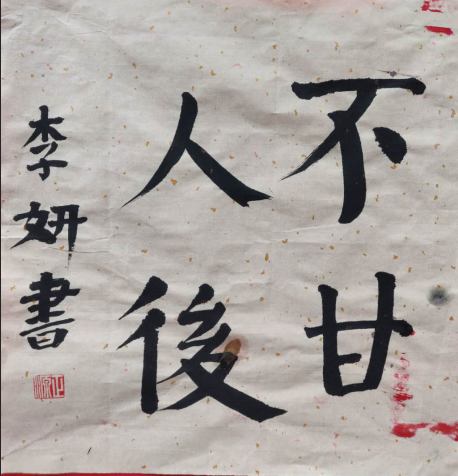 不甘
人後
李妍書